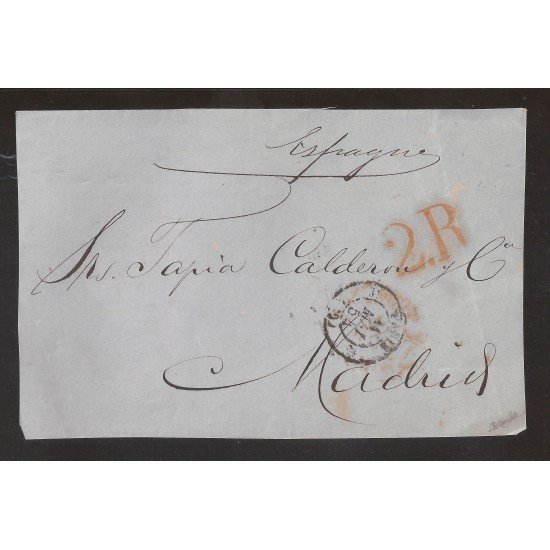 Espagne
2R
Srs. Tapia Calderon y Cª
Madrid